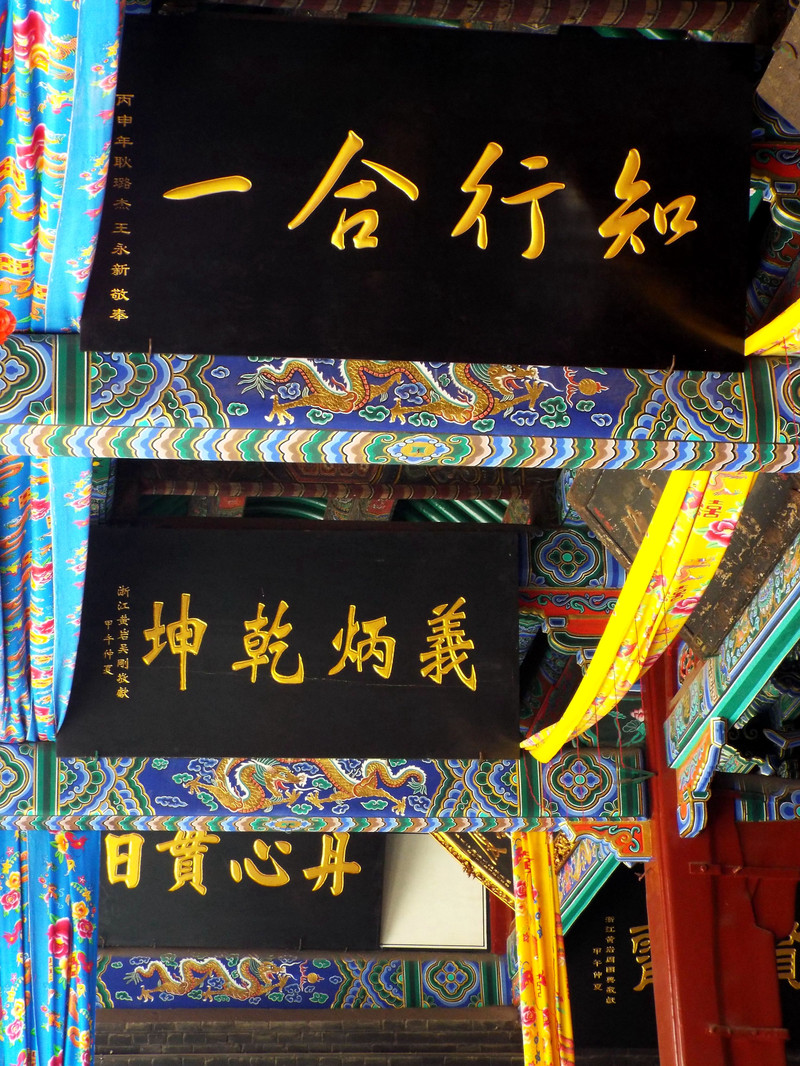 知行合一
丙申年耿璐杰 王永新 敬奉
義炳乾坤
浙江黄岩吴剛敬獻
甲午仲夏
丹心貫日
浙江黄岩
甲午仲夏